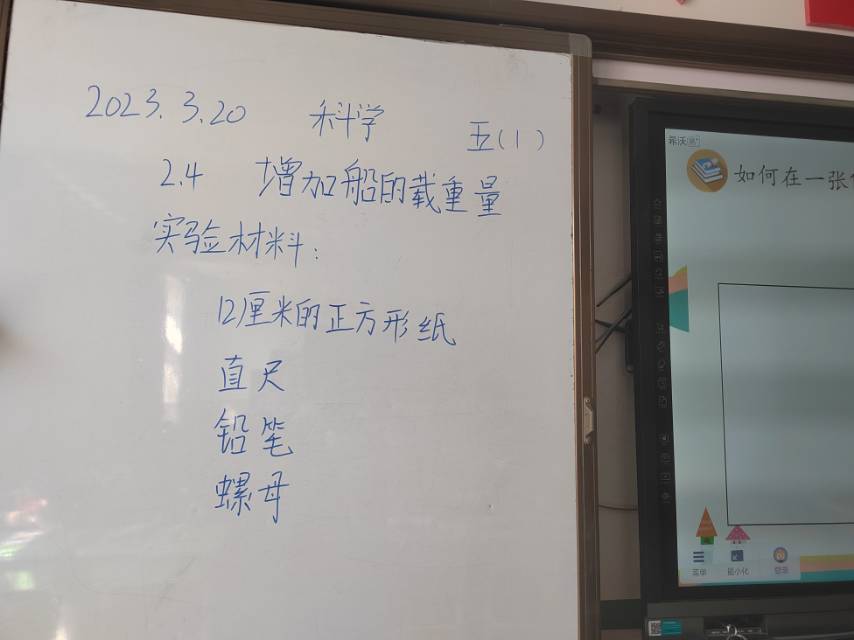 2023.3.20 科学 五(1)
2.4 增加船的载重量
实验材料:
12厘米的正方形纸
直尺
铅笔
螺母
希沃
如何在一张
菜单 最小化